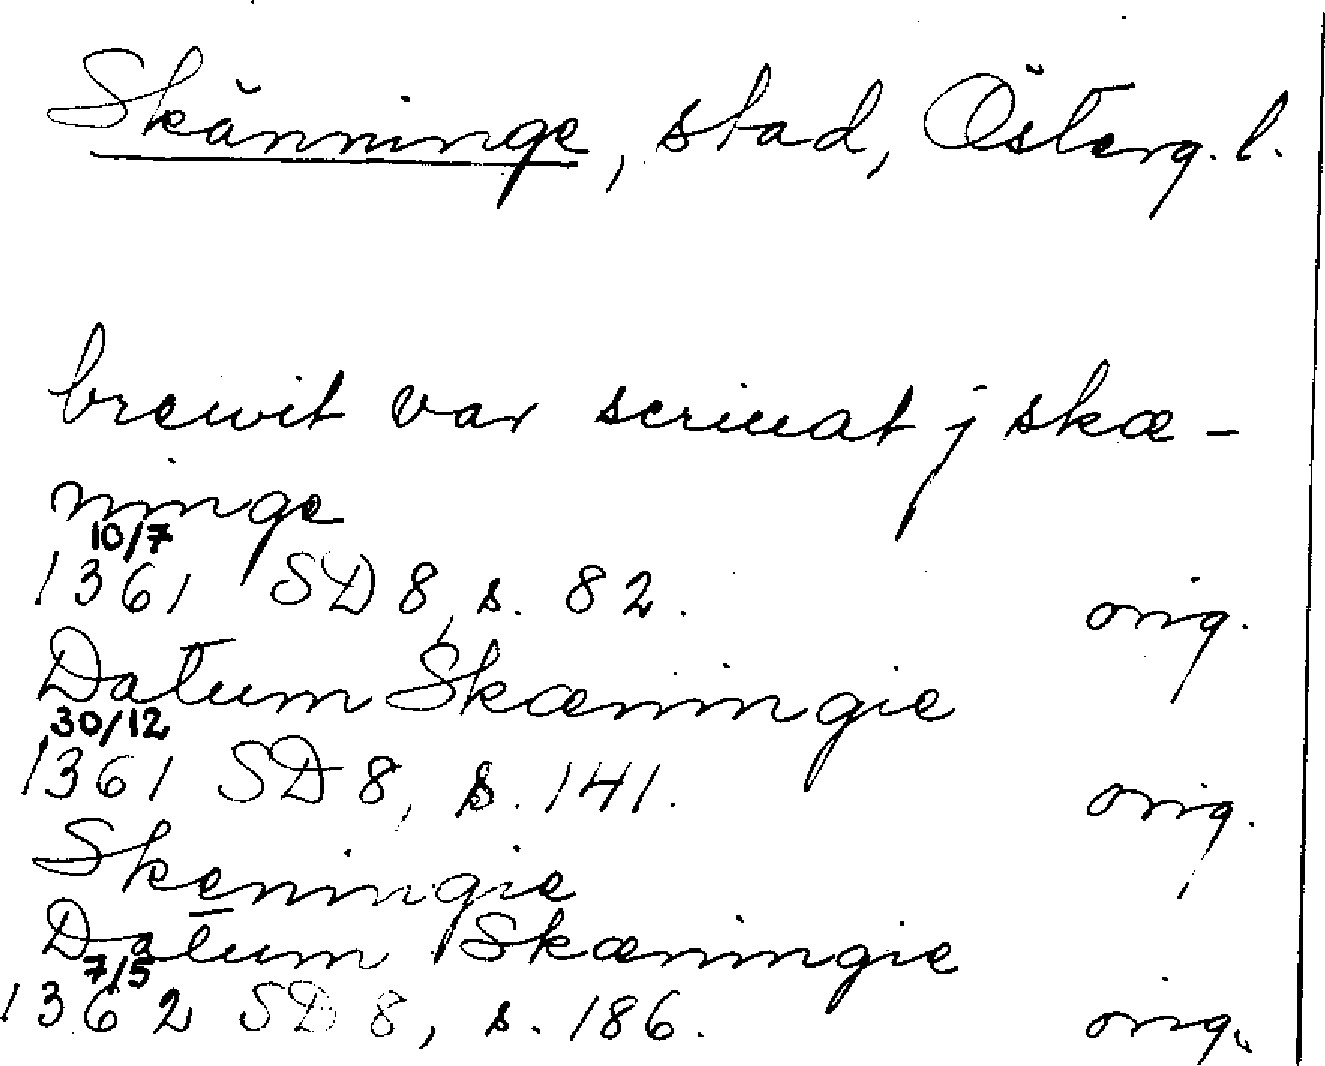 Skänninge, stad, Österg. l.
brewit var scriuat j skæ-
ninge
10/7
1361 SD 8, s. 82. orig.
Datum Skæningie
30/12
1361 SD 8, s. 141. orig.
Skeningie
Datum Skæningie
7/5
1362 SD 8, s. 186. orig.